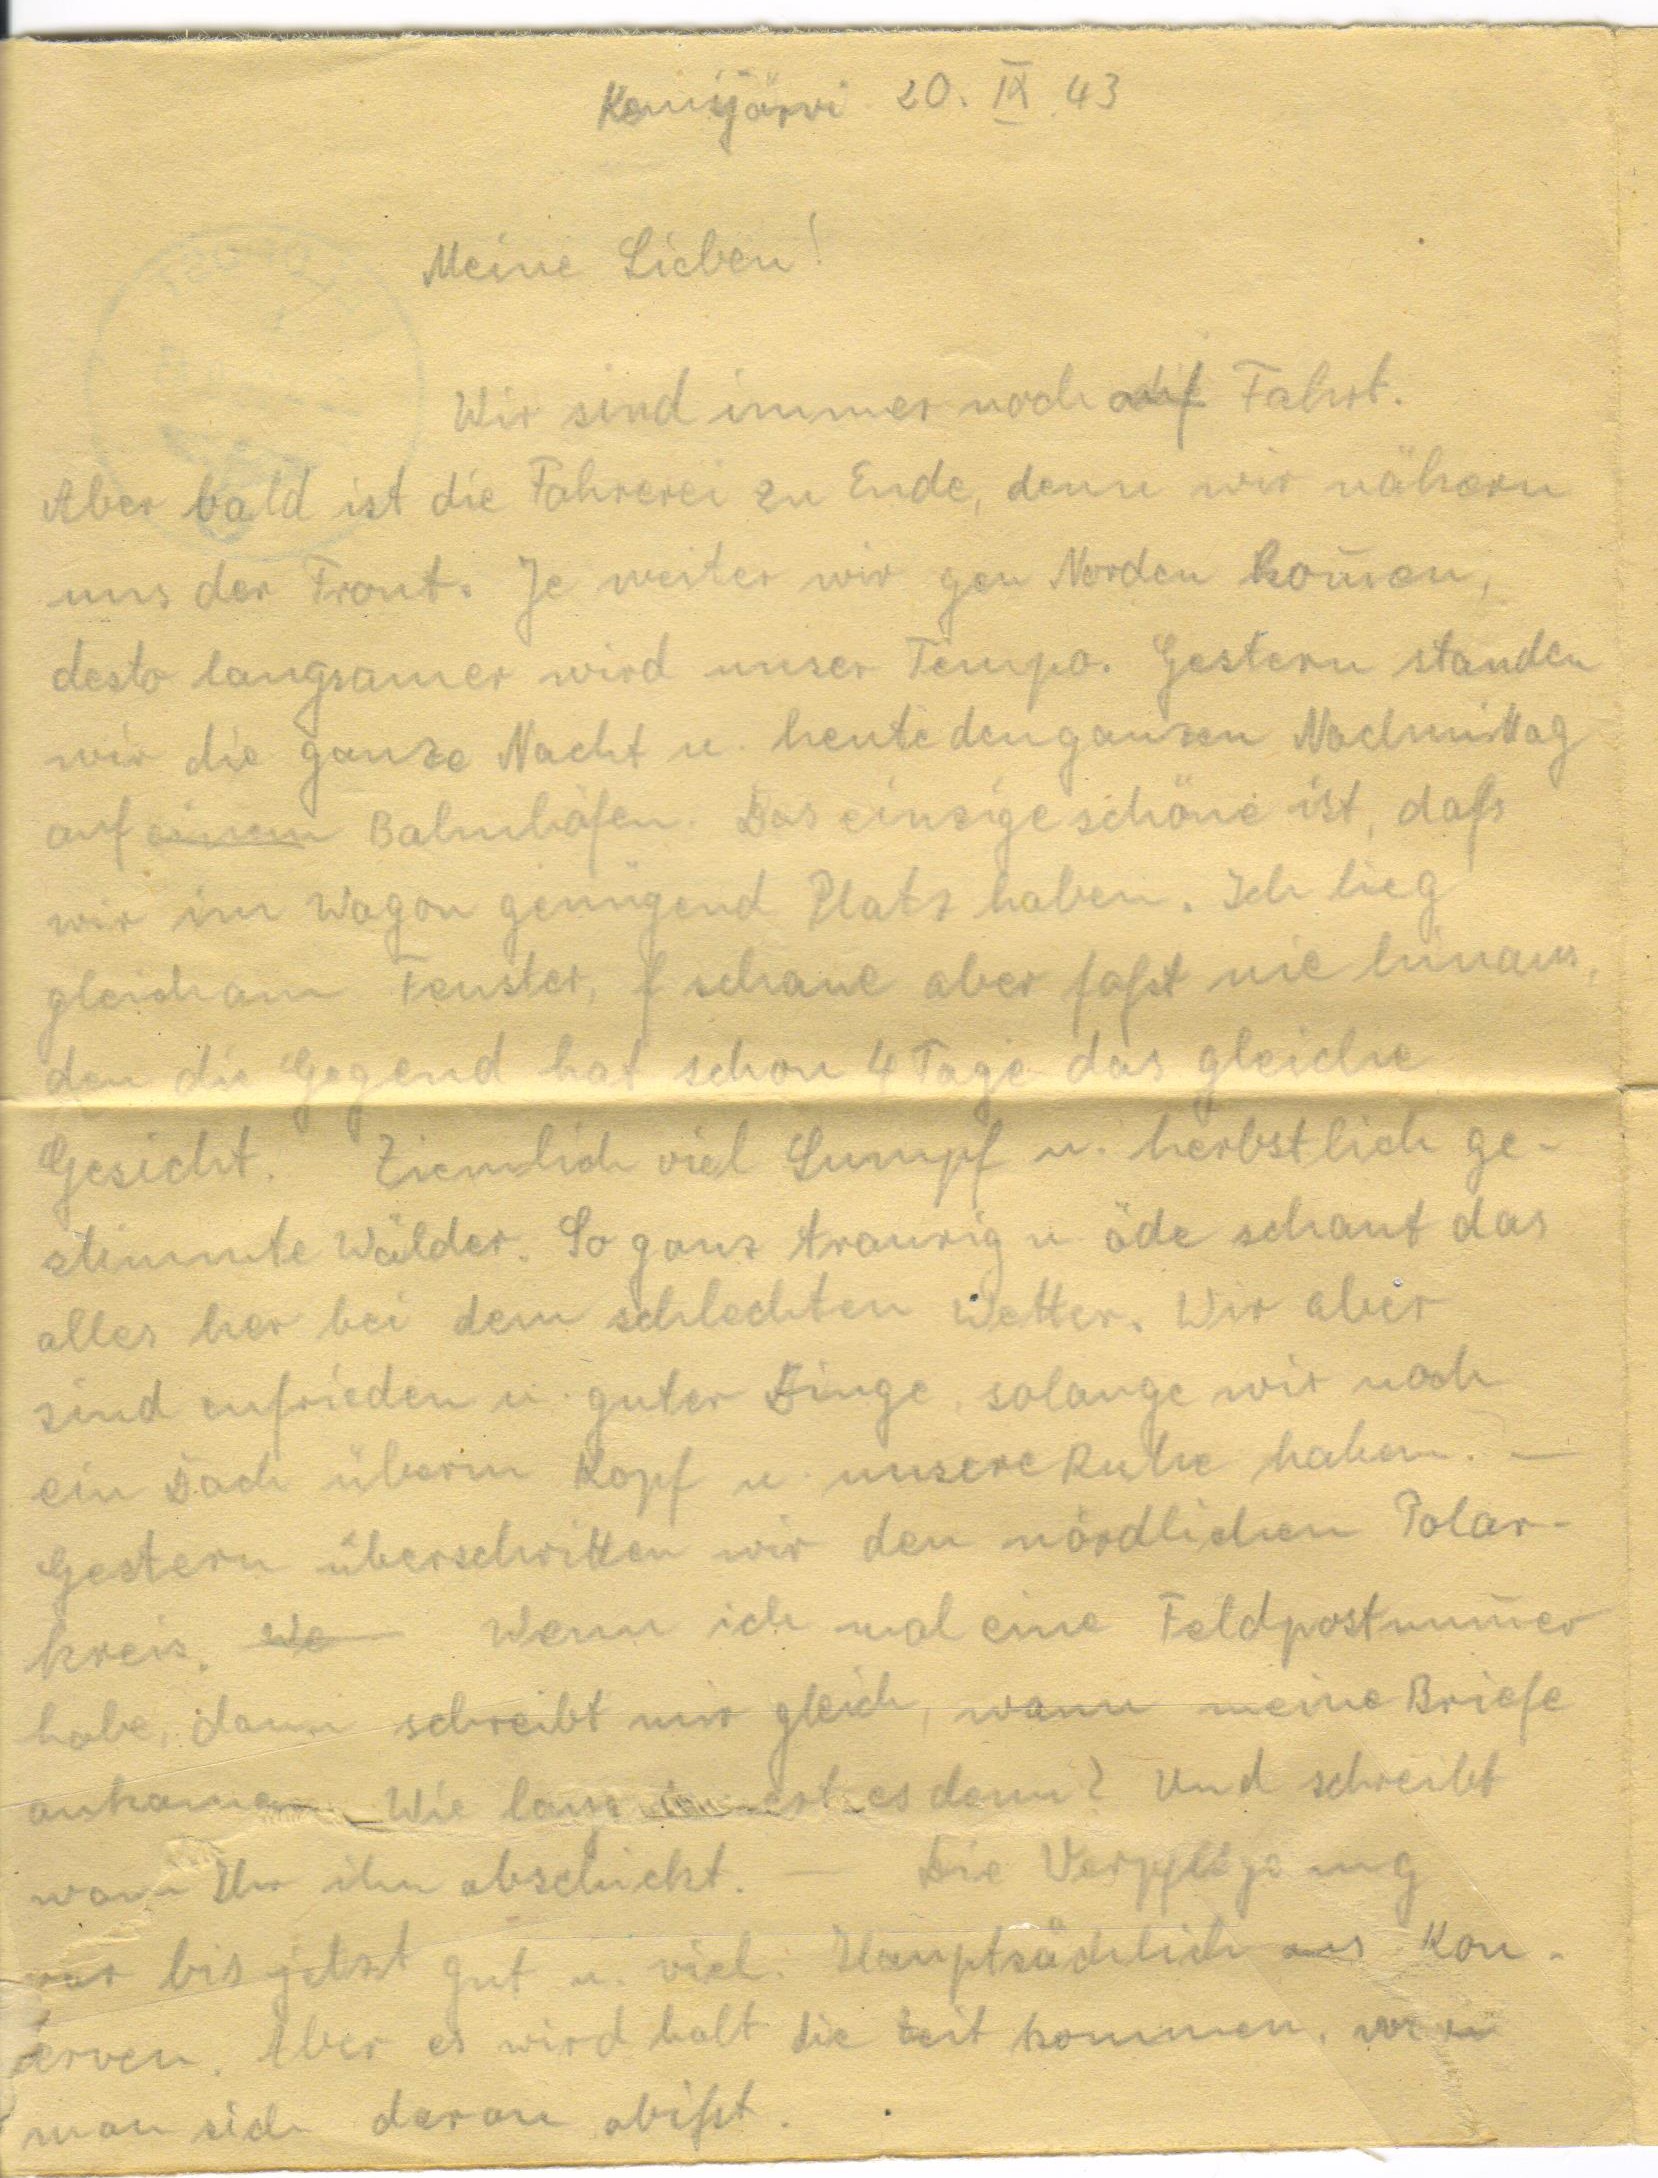 Kemijärvi 20. IX. 43
Meine Lieben!
Wir sind immer noch auf Fahrt.
Aber bald ist die Fahrerei zu Ende, denn wir nähern
uns der Front. Je weiter wir gen Norden kom̄en,
desto langsamer wird unser Tempo. Gestern standen
wir die ganze Nacht u. heute den ganzen Nachmittag
auf einem Bahnhöfen. Das einzige schöne ist, daß
wir im Wagon genügend Platz haben. Ich lieg
gleich am Fenster, schaue aber faßt nie hinaus,
den die Gegend hat schon 4 Tage das gleiche
Gesicht. Ziemlich viel Sumpf u. herbstlich ge-
stimmte Wälder. So ganz traurig u öde schaut das
alles her bei dem schlechten Wetter. Wir aber
sind zufrieden u. guter Dinge, solange wir noch
ein Dach überm Kopf u. unsere Ruhe haben. —
Gestern überschritten wir den nördlichen Polar-
kreis. We Wenn ich mal eine Feldpostnum̄er
habe, dann schreibt mir gleich, wann meine Briefe
ankamen. Wie lang es denn? Und schreibt
wann Ihr ihn abschickt. — Die Verpflegung
war bis jetzt gut u. viel. Hauptsächlich aus Kon-
serven. Aber es wird halt die Zeit kommen, wo
man sich daran abißt.